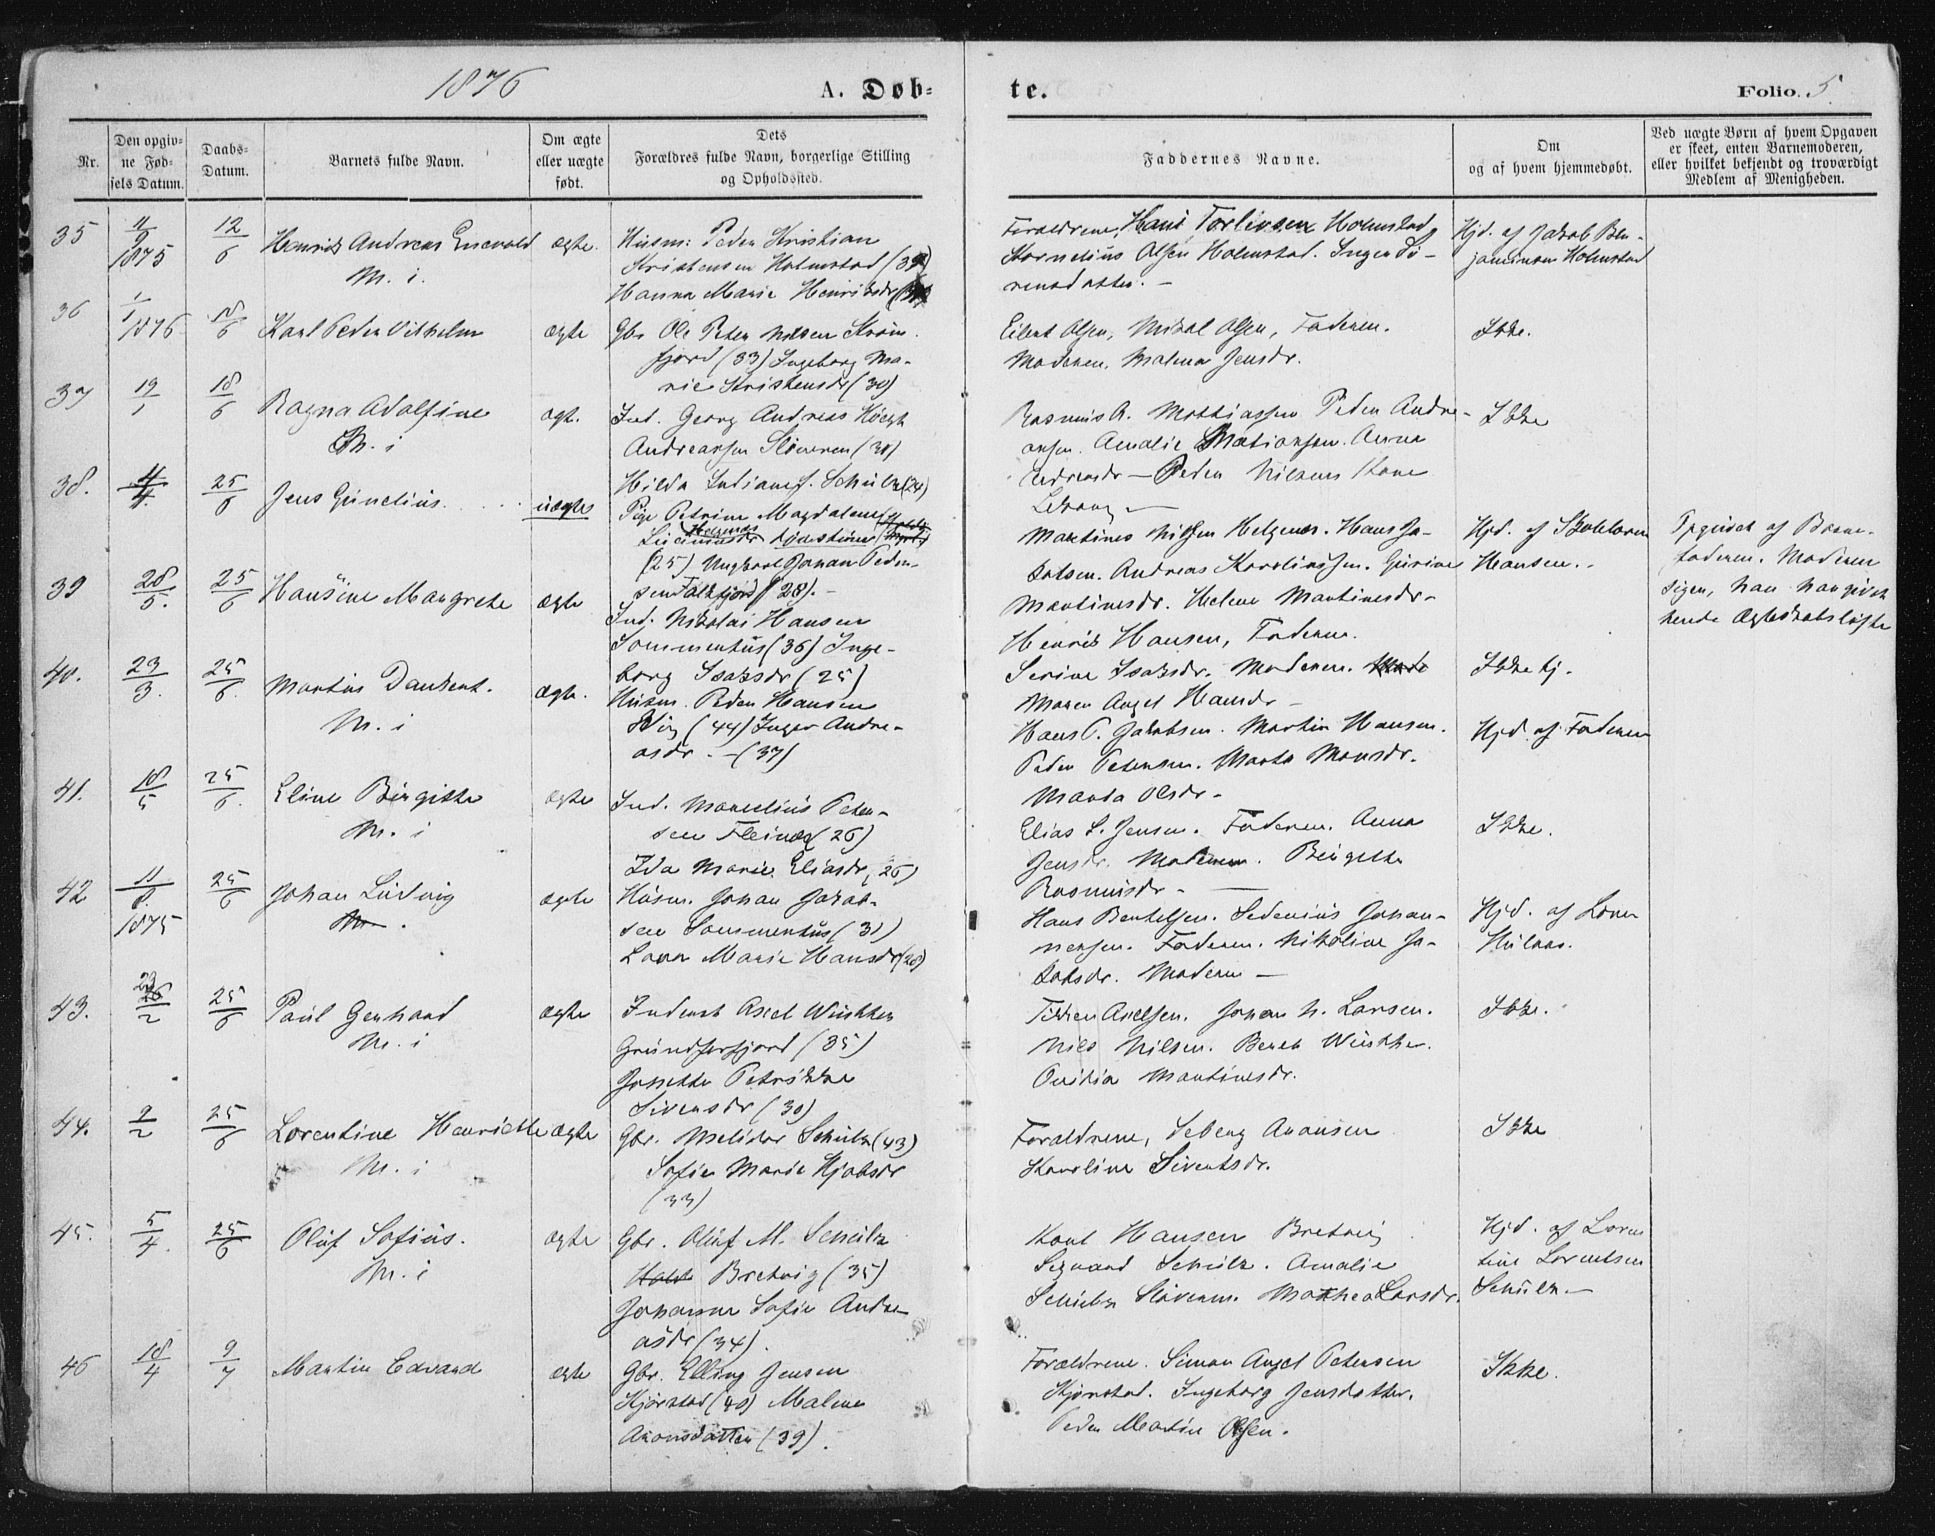 1876
A. Døb-
te.
Folio 5
Nr.
Den opgiv-
ne Fød-
sels Datum.
Daabs-
Datum.
Barnets fulde Navn.
Om ægte
eller uægte
født.
Dets
Forældres fulde Navn, borgerlige Stilling
og Opholdssted.
Faddernes Navne.
Om
og af hvem hjemmedøbt.
Ved uægte Børn af hvem Opgaven
er skeet, enten Barnemoderen,
eller hvilket bekjendt og troværdigt
Medlem af Menigheden.
35
1875
12/6
Henrik Andreas Enevold
M. i.
ægte.
Husm: Peder Kristian
Kristensen Holmstad
Hanna Marie Henriksdr
Forældrene, Hans Torleivsen Holmstad,
Kornelius Olsen Holmstad. Inger Sø-
rensdatter. -
Hjd. af Jakob Ben-
jaminsen Holmstad
36
1/1 1876
18/6
Karl Peder Vilhelm
ægte
Gbr Ole Peter Nilsen Kvam
fjord (33) Ingeborg Ma-
rie Kristensdr (30)
Eilert Olsen, Mikal Olsen, Faderen.
Moderen, Malena Jensdr.
Ikke.
37
19/1
18/6
Ragna Adolfine
M. i
ægt.
Ind. Georg Andreas Høegh
Andreassen Sløveren (30)
Hilda Schulz (24)
Rasmus A. Mathiassen Peder Andre-
asen. Amalie Matiassen. Anna
Andreasdr - Peder Nilsens Kone
Ikke
38.
25/6
Jens Gunelius
uægte
Pige Petrine Magdalene
(25) Ungkarl Johan Peder-
sen Falkfjord (28). -
Martines Nilsen Helgenes. Hans Ja-
kobsen. Andreas Karolinssen. Gurine
Martinesdr. Helene Martinesdr-
Hjd. af Skolelærer
Hansen.
Opgivet af Barne-
faderen. Moderen
siger, han har givet
hende Ægteskabsløfte
39
28/5.
25/6
Hansine Margrete
ægte
Ind. Nikolai Hansen
Sommenhus (36) Inge-
borg Isaksdr (25)
Henrik Hansen, Faderen.
Serine Isaksdr. Moderen.
Maren Angel Hansdr -
Ikke hj.
40.
23/3.
25/6.
Martin
M. i
ægte.
Husm. Peder Hansen
(44) Inger Andre-
asdr. - (37)
Hans P. Jakobsen. Martin Hansen.
Peder Petersen. Marta Monsdr.
Marta Olsdr -
Hjd. af Faderen
41.
18/5
25/6.
Eline Birgitte
M. i
ægte
Ind. Marselius Peter-
sen Fleines (26)
Ida Marie Eliasdr, 26)
Elias S. Jensen. Faderen. Anna
Jensdr. Moderen. Birgitte
Rasmusdr -
Ikke.
42
11/8. 1875
25/6
Johan Ludvig
ægte
Husm. Johan Jakob-
sen Sommenhus (31)
Lava Marie Hansdr (28)
Hans Bentelsen. Sedenius Johan-
nessen. Faderen. Nikoline Ja-
kobsdr. Moderen -
Hjd. af
43.
25/6
Paul Gerhard
M. i
ægte
Inderst Axel Winther
Grundforfjord (35)
Jonette Petrikke
Sivensdr (30)
Axelsen. Johan N. Larsen.
Nils Nilsen. Berit Winther.
Ovidia Martinesdr.
Ikke.
44.
9/2
25/6
Lorentine Henriette
M. i
ægte
Gbr. Melidor Schulz (43)
Sofie Marie
(33)
Forældrene, Seberg Aronsen
Karoline Sivertsdr.
Ikke
45.
5/4.
25/6
Oluf Sofius.
M. i
ægte
Gbr. Oluf M. Schulz
Bretvig (35)
Johanna Sofie Andre-
asdr (34).
Karl Hansen Bretvig
Sigvard Schulz. Amalie
Schulz Sløveren. Mathea Larsdr.
Hjd. af Loren
tine Lorentsen
Schulz. -
46
18/4
9/7
Martin Edvard
ægte
Gbr. Elling Jensen
Kjørstad (40) Malene
Aronsdatter (39).
Forældrene. Simon Angel Petersen
Kjørstad. Ingeborg Jensdatter.
Peder Martin Olsen.
Ikke.